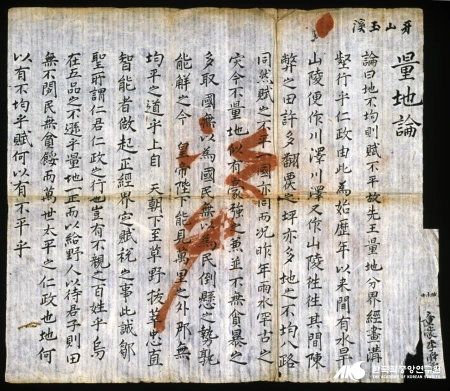 牙山玉溪
量地論
論曰地不均則賦不平故先王量地分界經畫溝
壑行乎仁政由此為始歷年以来間有水旱
山陵便作川澤川澤又作山陵徃徃其間陳
弊之田許多翻覆之坪亦多地之不均八路
同然賦之不平一國亦同而况昨年雨水罕古之
灾今不量地似有富强之兼並不無貧暴之
多取國無以為國民無以為民倒懸之勢孰
能解之今 皇帝陛下能見萬里之外那無
均平之道乎上自 天朝下至草野拔茅忠直
智能者做起正經界定賦稅之事此誠鄒
聖所謂仁君仁政之行也豈有不親之百姓乎烏
在五品之不遜乎量地一正而以給野人以待君子則田
無不闢民無貧餒而萬世太平之仁政也地何
以有不均乎賦何以有不平乎
한국학중앙연구원
THE ACADEMY OF KOREAN STUDIES